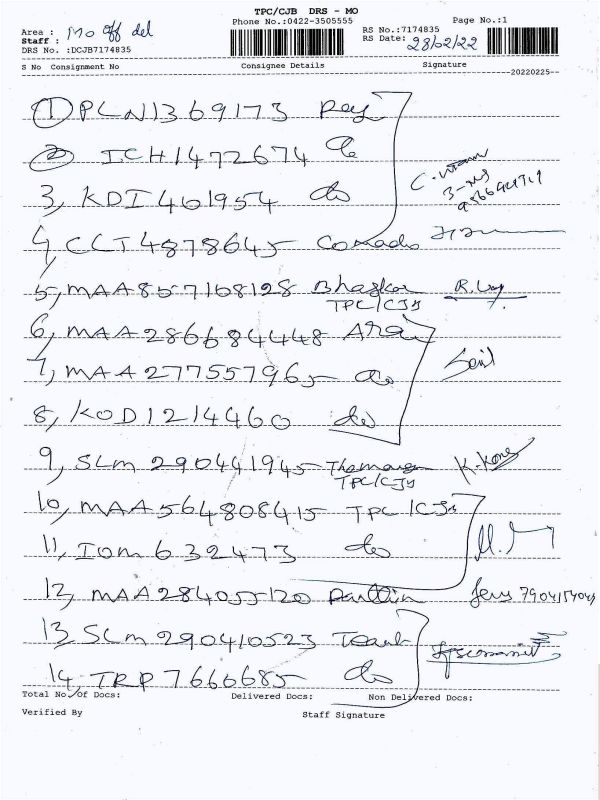 TPC/CJB DRS - MO
Phone No.:0422-3505555 Page No.:1
Area : Mo Off del RS No.:7174835
Staff : RS Date: 28/02/22
DRS No. :DCJB7174835
S No Consignment No Consignee Details Signature
20220225
1) PLN1369173 Ray
2) ICH1472674 do
3, KDI461954 do
4, CCT4878645
5, MAA857108128 Bhaskar R.
TPC/CJB
6, MAA286684448
7, MAA277557965 do
8, KOD1214460 do
9, SLM290441945 K.
TPC/CJB
10, MAA564808415 TPC/CJB
11, IOM632473 do
12, MAA284055120
13, SLM290410523
14, TRP7666685 do
Total No. Of Docs: Delivered Docs: Non Delivered Docs:
Verified By Staff Signature